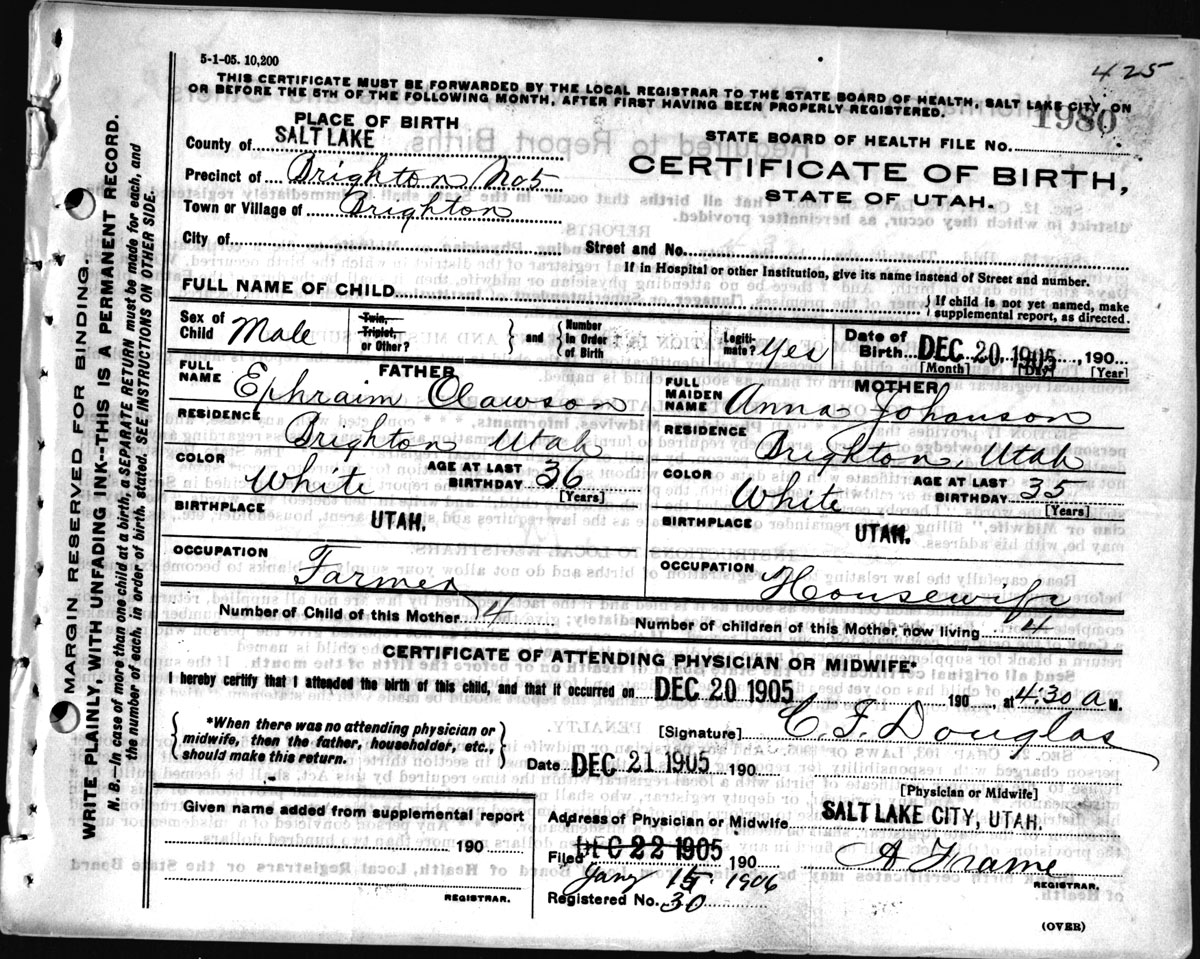 5-1-05. 10,200
425
THIS CERTIFICATE MUST BE FORWARDED BY THE LOCAL REGISTRAR TO THE STATE BOARD OF HEALTH, SALT LAKE CITY, ON
OR BEFORE THE 5TH OF THE FOLLOWING MONTH, AFTER FIRST HAVING BEEN PROPERLY REGISTERED.
1980
PLACE OF BIRTH
STATE BOARD OF HEALTH FILE No.
County of SALT LAKE
CERTIFICATE OF BIRTH,
Precinct of Brighton No 5
STATE OF UTAH.
Town or Village of Brighton
City of
Street and No.
If in Hospital or other Institution, give its name instead of Street and number.
FULL NAME OF CHILD
If child is not yet named, make
supplemental report, as directed.
Sex of Child Male
Twin, Triplet, or Other?
and
Number in Order of Birth
Legiti-mate? Yes
Date of Birth DEC 20 1905, 190
[Month] [Day] [Year]
FATHER
FULL NAME Ephraim Olawson
MOTHER
FULL MAIDEN NAME Anna Johanson
RESIDENCE Brighton Utah
RESIDENCE Brighton, Utah
COLOR White AGE AT LAST BIRTHDAY 36 [Years]
COLOR White AGE AT LAST BIRTHDAY 35 [Years]
BIRTHPLACE UTAH.
BIRTHPLACE UTAH.
OCCUPATION Farmer
OCCUPATION Housewife
Number of Child of this Mother 4
Number of children of this Mother now living 4
CERTIFICATE OF ATTENDING PHYSICIAN OR MIDWIFE*
I hereby certify that I attended the birth of this child, and that it occurred on DEC 20 1905 190, at 4:30 a M.
*When there was no attending physician or
midwife, then the father, householder, etc.,
should make this return.
[Signature] C. F. Douglas
Date DEC 21 1905 190
[Physician or Midwife]
Given name added from supplemental report
190
REGISTRAR.
Address of Physician or Midwife SALT LAKE CITY, UTAH.
Filed DEC 22 1905 190
Jany 15 1906
A Frame
REGISTRAR.
Registered No. 30
(OVER)
MARGIN RESERVED FOR BINDING.
WRITE PLAINLY WITH UNFADING INK--THIS IS A PERMANENT RECORD.
N. B.--In case of more than one child at a birth, a SEPARATE RETURN must be made for each, and
the number of each, in order of birth, stated. SEE INSTRUCTIONS ON OTHER SIDE.